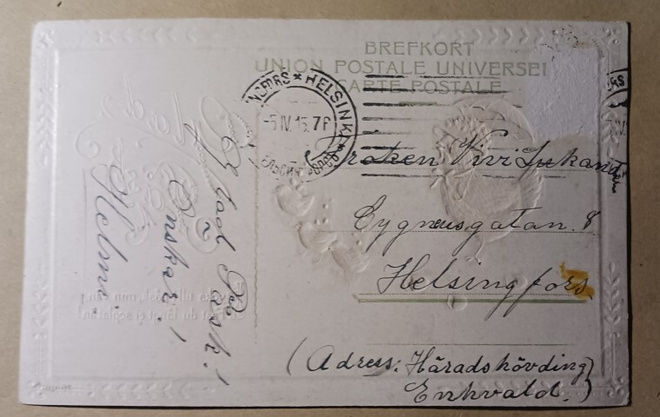 BREFKORT
UNION POSTALE UNIVERSEL
CARTE POSTALE
HELSINKI
5 IV. 15. 7
Glad Påsk!
Önskar!
Helmi
Fröken Vivi
Cygnæusgatan. 8
Helsingfors.
(Adress: Häradshövding
Enkvald.)